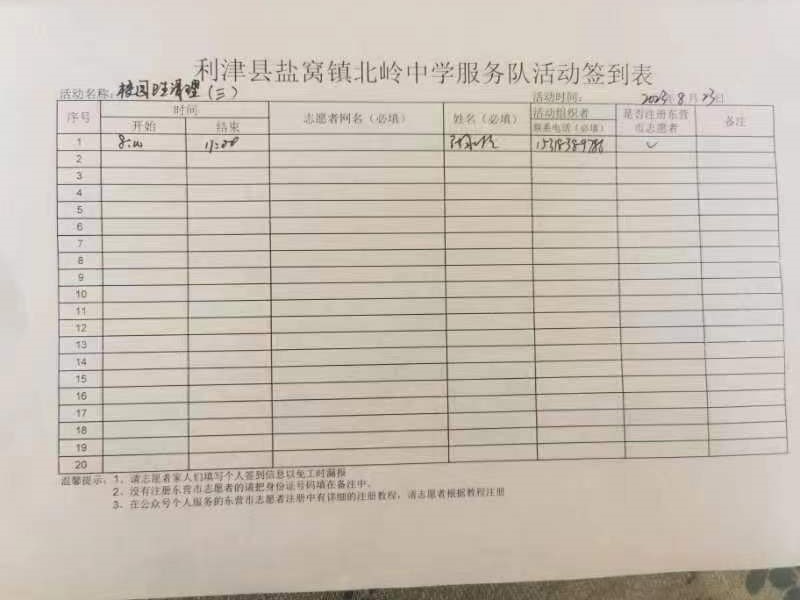 利津县盐窝镇北岭中学服务队活动签到表
活动名称:校园卫生清理(三) 活动时间: 2023年8月23日
序号 时间 志愿者网名(必填) 姓名(必填) 活动组织者 是否注册东营市志愿者 备注
开始 结束 联系电话(必填)
1 8:00 11:00 15318389786 ✓
2
3
4
5
6
7
8
9
10
11
12
13
14
15
16
17
18
19
20
温馨提示:1、请志愿者家人们填写个人签到信息以免工时漏报
2、没有注册东营市志愿者的请把身份证号码填在备注中。
3、在公众号个人服务的东营市志愿者注册中有详细的注册教程,请志愿者根据教程注册